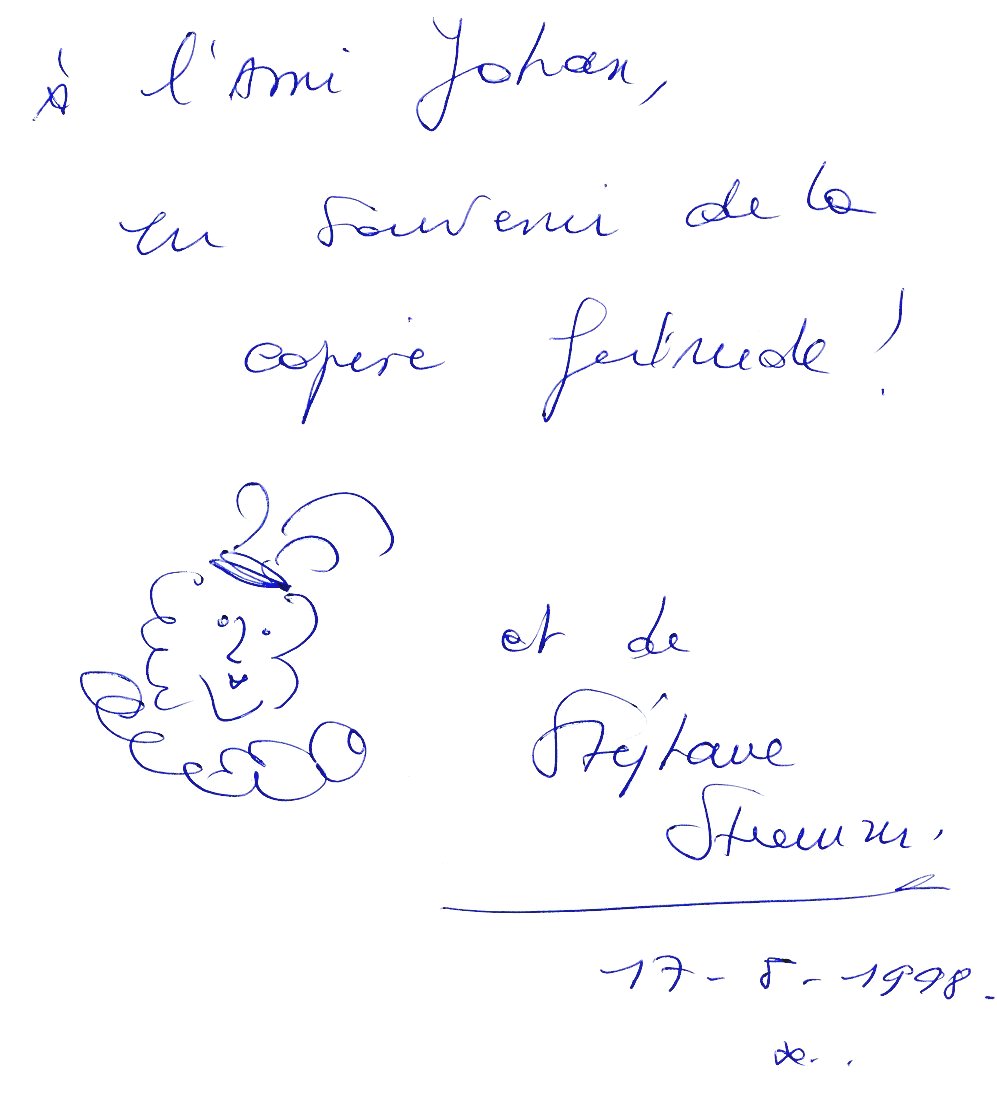 à l'Ami Johan,
en souvenir de la
copine Gertrude !
et de
Stéphane
Steeman.
17-8-1998.